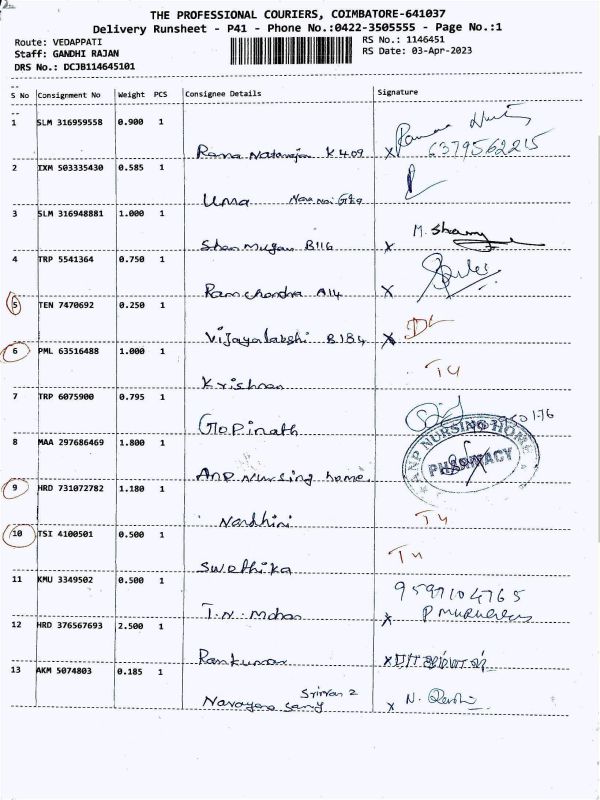 THE PROFESSIONAL COURIERS, COIMBATORE-641037
Delivery Runsheet - P41 - Phone No.:0422-3505555 - Page No.:1
Route: VEDAPPATI
RS No.: 1146451
Staff: GANDHI RAJAN
RS Date: 03-Apr-2023
DRS No.: DCJB114645101
S No Consignment No Weight PCS Consignee Details Signature
1 SLM 316959558 0.900 1
Rama Natarajan K 409 x 6379562215
2 IXM 503335430 0.585 1
Uma
3 SLM 316948881 1.000 1
M. Shanmu
Shan Mugam B116 x
4 TRP 5541364 0.750 1
Ram Chandra A14 x
5 TEN 7470692 0.250 1
Vijayalakshi B184 x
6 PML 63516488 1.000 1
Krishnan
7 TRP 6075900 0.795 1
Gopinath
8 MAA 297686469 1.800 1
ANP NURSING HOME
PHARMACY
Anp Nursing home.
9 HRD 731072782 1.180 1
Nandhini
10 TSI 4100501 0.500 1
Swethika
11 KMU 3349502 0.500 1
9597104765
T.N. Mohan x
12 HRD 376567693 2.500 1
Ramkumar x
13 AKM 5074803 0.185 1
Narayana Samy x N.